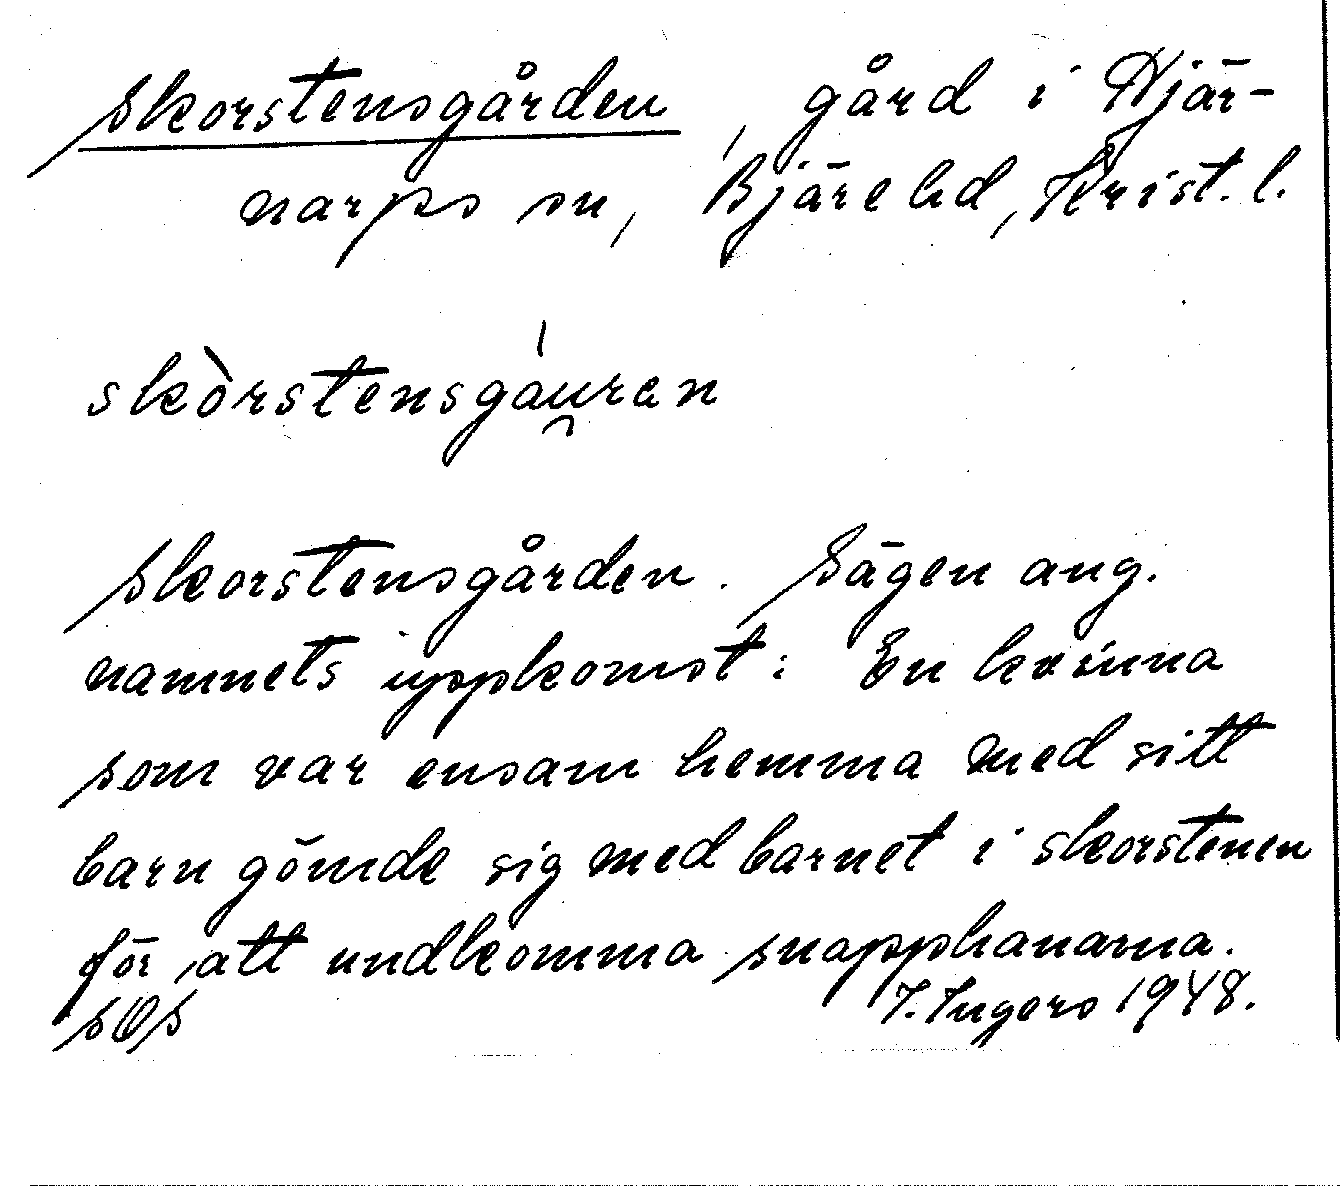 Skorstensgården, gård i Hjär-
narps sn, Bjäre hd, Krist. l.
skòrstensgáu̯ren
Skorstensgården. Sägen ang.
namnets uppkomst: En kvinna
som var ensam hemma med sitt
barn gömde sig med barnet i skorstenen
för att undkomma snapphanarna.
SOS I. Ingers 1948.